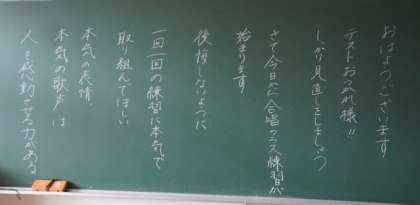 おはようございます
テストおつかれ様!!
しっかり見直しをしましょう
さて今日から合唱コンクラス練習が
始まります
後悔しないように
一回一回の練習に本気で
取り組んでほしい
本気の表情、
本気の歌声は
人を感動させる力がある